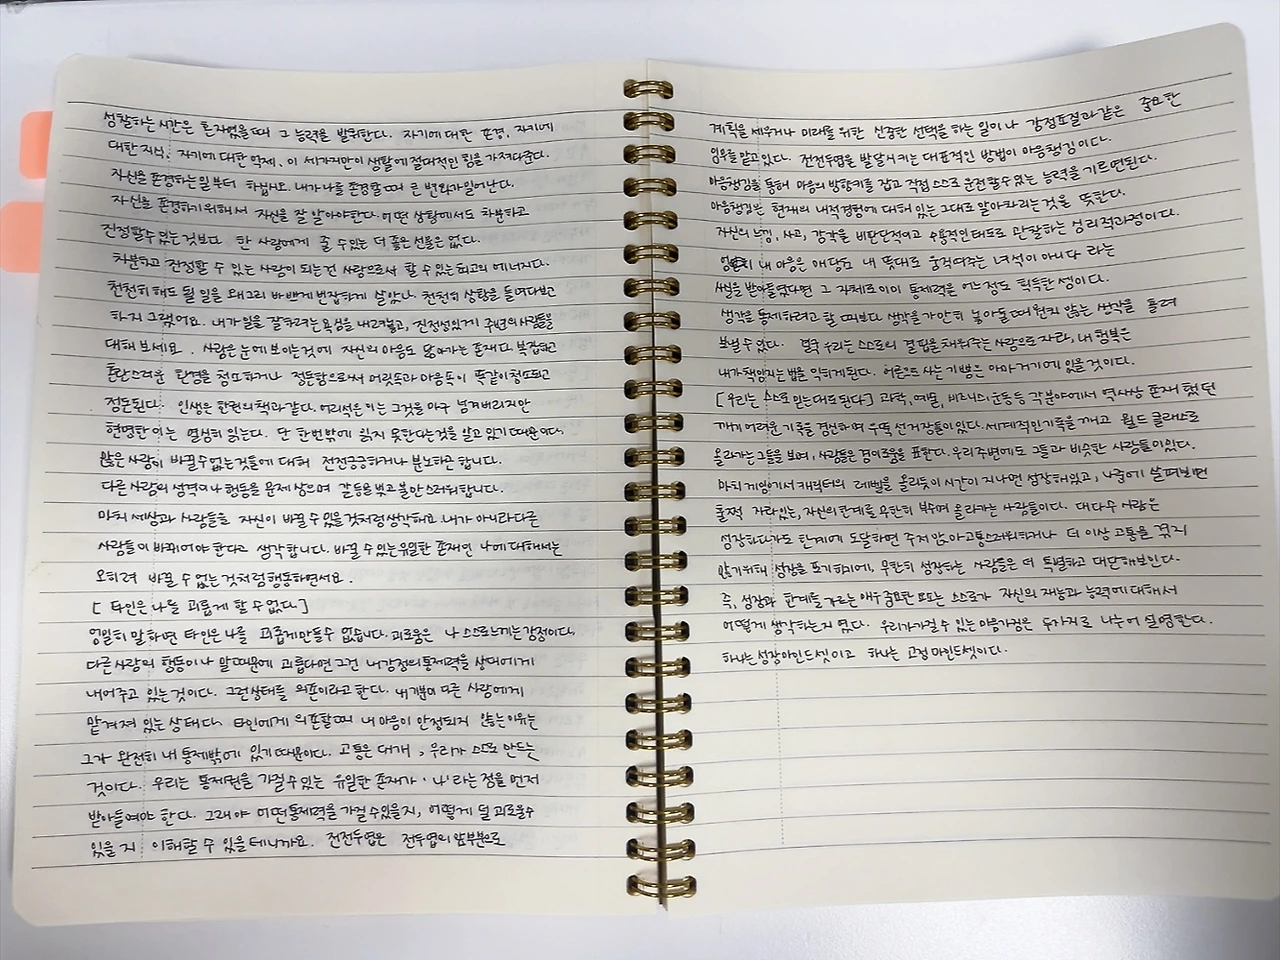 성찰하는 시간은 혼자있을때 그 능력을 발휘한다. 자기에 대한 존경, 자기에
대한 지식, 자기에 대한 억제, 이 세가지만이 생활에 절대적인 힘을 가져다준다.
자신을 존경하는일 부터 하십시오. 내가 나를 존경할때 큰 변화가일어난다.
자신을 존경하기위해서 자신을 잘 알아야한다. 어떤 상황에서도 차분하고
진정할수있는것보다 한 사람에게 줄 수있는 더 좋은 선물은 없다.
차분하고 진정할 수 있는 사람이 되는건 사람으로서 할 수있는 최고의 에너지다.
천천히해도 될 일을 왜그리 바쁘게 번잡하게 살았나. 천천히 상황을 들여다보고
하지 그랬어요. 내가 일을 잘하려는 욕심을 내려놓고, 진정성있게 주변의 사람들을
대해 보세요. 사람은 눈에 보이는것에 자신의 마음도 닮아가는 존재다. 복잡하고
혼란스러운 환경을 청소하거나 정돈함으로써 머릿속과 마음속이 똑같이 청소되고
정돈된다. 인생은 한권의 책과 같다. 어리석은 이는 그것을 마구 넘겨버리지만
현명한 이는 열심히 읽는다. 단 한번밖에 읽지 못한다는것을 알고 있기 때문이다.
많은 사람이 바꿀수없는것들에 대해 전전긍긍하거나 분노하곤 합니다.
다른 사람의 성격이나 행동을 문제 삼으며 갈등을 빚고 불안스러워합니다.
마치 세상과 사람들을 자신이 바꿀 수 있을것처럼 생각해요. 내가 아니라 다른
사람들이 바뀌어야 한다고 생각합니다. 바꿀 수있는 유일한 존재인 나에 대해서는
오히려 바꿀 수 없는 것처럼 행동하면서요.
[ 타인은 나를 괴롭게 할 수 없다. ]
엄밀히 말하면 타인은 나를 괴롭게만들수 없습니다. 괴로움은 나 스스로 느끼는 감정이다.
다른 사람의 행동이나 말 때문에 괴롭다면 그건 내감정의 통제력을 상대에게
내어주고 있는 것이다. 그런상태를 의존이라고 한다. 내 기분이 다른 사람에게
맡겨져 있는 상태다. 타인에게 의존할때 내 마음이 안정되지 않는 이유는
그가 완전히 내 통제밖에 있기 때문이다. 고통은 대개, 우리가 스스로 만드는
것이다. 우리는 통제권을 가질수있는 유일한 존재가 '나'라는 점을 먼저
받아들여야 한다. 그래야 어떤통제력을 가질수있을지, 어떻게 덜 괴로울수
있을 지 이해할 수 있을테니까요. 전전두엽은 전두엽의 앞부분으로
계획을 세우거나 미래를 위한 신중한 선택을 하는 일이나 감정조절과 같은 중요한
임무를 맡고있다. 전전두엽을 발달시키는 대표적인 방법이 마음챙김이다.
마음챙김을 통해 마음의 방향키를 잡고 직접 스스로 운전할수있는 능력을 기르면된다.
마음챙김은 현재의 내적경험에 대해 있는 그대로 알아차리는것을 뜻한다.
자신의 느낌, 사고, 감각을 비판단적이고 수용적인 태도로 관찰하는 심리적과정이다.
내 마음은 애당초 내 뜻대로 움직여주는 녀석이 아니다 라는
사실을 받아들였다면 그 자체로 이미 통제력을 어느정도 획득한 셈이다.
생각을 통제하려고 할 때보다 생각을 가만히 놓아둘때 원치 않는 생각을 흘려
보낼 수있다. 결국 우리는 스스로의 결핍을 채워주는 사람으로 자라, 내 행복은
내가 책임지는 법을 익히게된다. 어른으로 사는 기쁨은 아마 거기에 있을 것이다.
[ 우리는 스스로 믿는대로 된다 ] 과학, 예술, 비즈니스, 운동 등 각분야에서 역사상 존재 했던
깨기 어려운 기록을 경신하며 우뚝 선 거장들이 있다. 세계적인 기록을 깨고 월드 클래스로
올라가는 그들을 보며, 사람들은 경이로움을 표한다. 우리주변에도 그들과 비슷한 사람들이있다.
마치 게임에서 캐릭터의 레벨을 올리듯이 시간이 지나면 성장해있고, 나중에 살펴보면
훌쩍 자라있는, 자신의 한계를 무한히 부수며 올라가는 사람들이다. 대다수 사람은
성장하다가도 한계에 도달하면 주저앉아 고통스러워하거나 더 이상 고통을 겪지
않기위해 성장을 포기하기에, 무한히 성장하는 사람들은 더 특별하고 대단해보인다.
즉, 성장과 한계를 가르는 매우 중요한 요소는 스스로가 자신의 재능과 능력에 대해서
어떻게 생각하는지 였다. 우리가 가질 수 있는 마음가짐은 두가지로 나누어 설명한다.
하나는 성장마인드셋이고 하나는 고정 마인드셋이다.